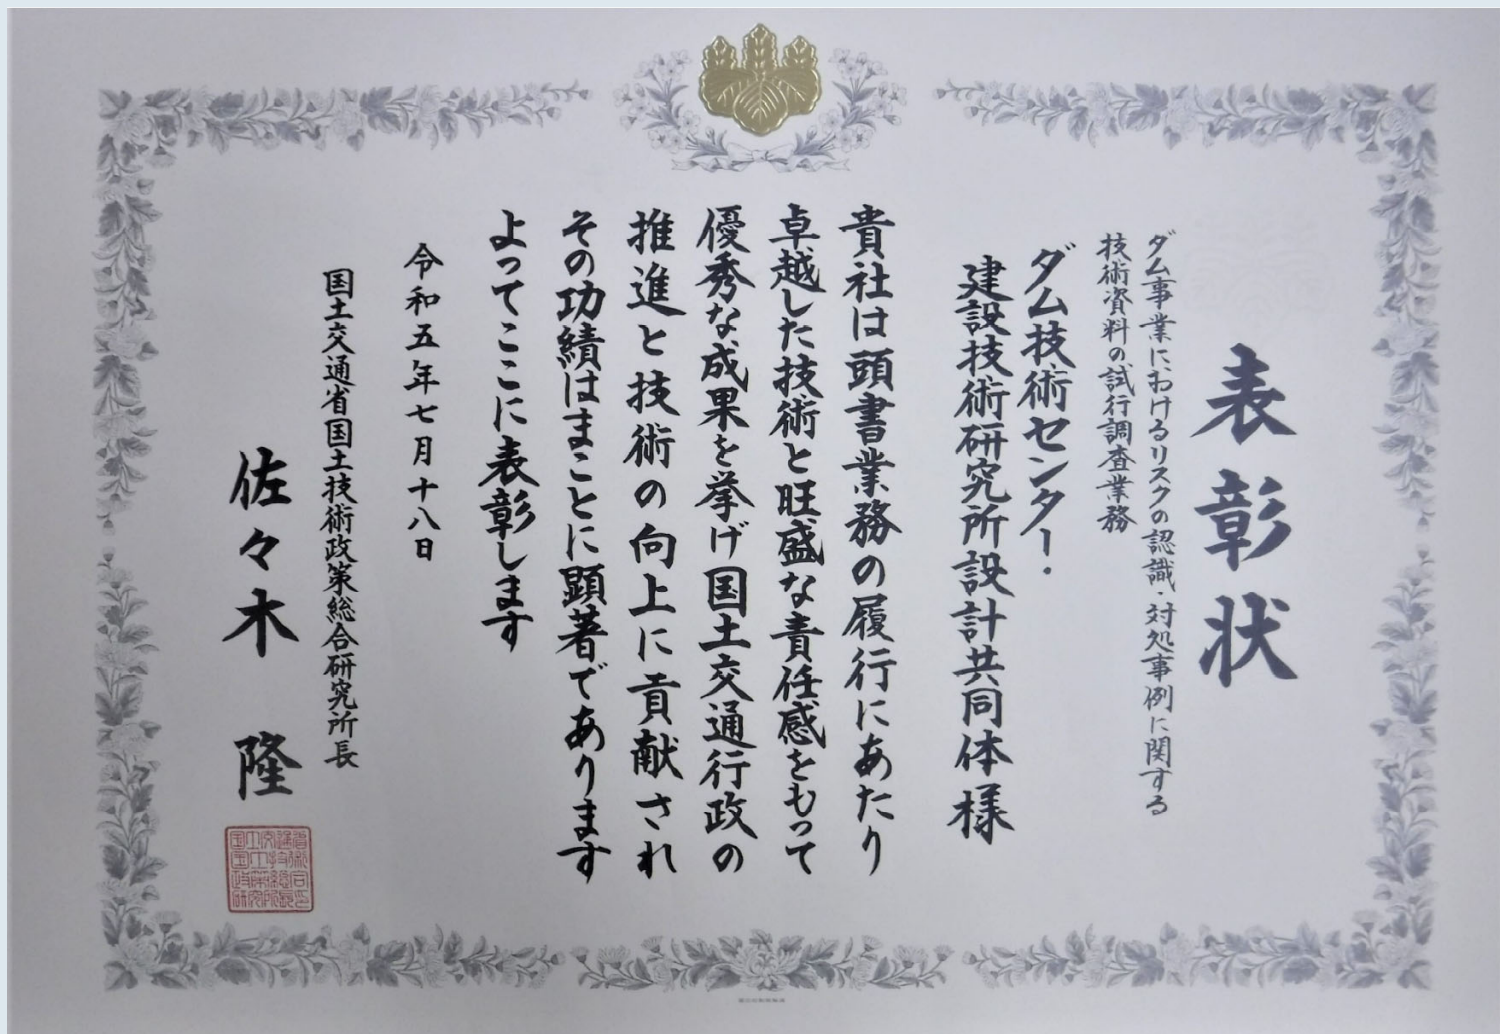 表彰状
ダム事業におけるリスクの認識・対処事例に関する
技術資料の試行調査業務
ダム技術センター・
建設技術研究所設計共同体様
貴社は頭書業務の履行にあたり
卓越した技術と旺盛な責任感をもって
優秀な成果を挙げ国土交通行政の
推進と技術の向上に貢献され
その功績はまことに顕著であります
よってここに表彰します
令和五年七月十八日
国土交通省国土技術政策総合研究所長
佐々木隆